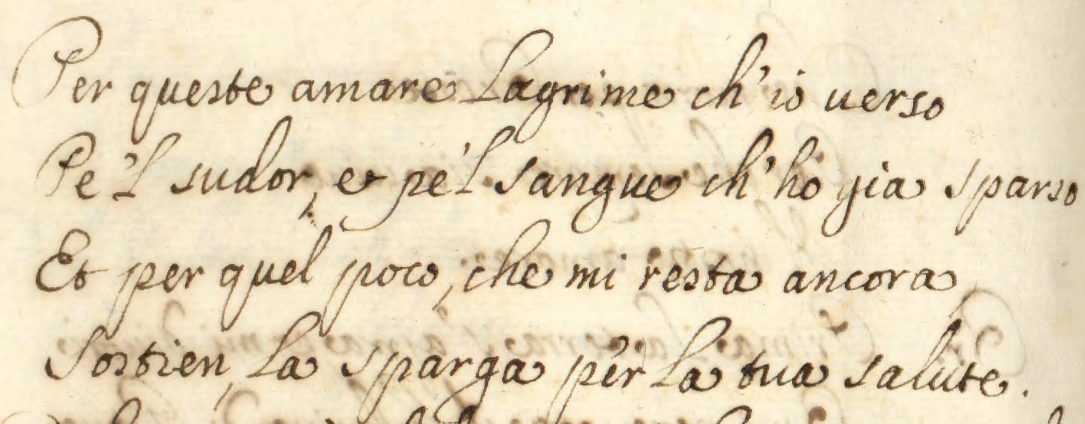 Per queste amare Lagrime ch'io uerso
Pe'l sudor, et pe'l sangue ch'ho gia sparso
Et per quel poco, che mi resta ancora,
Sostien, La sparga per La tua salute.